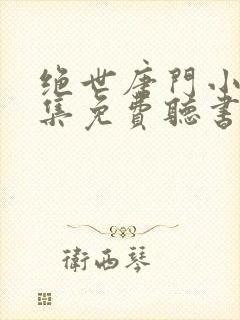 绝世唐門小
集免費聽書
衛西琴